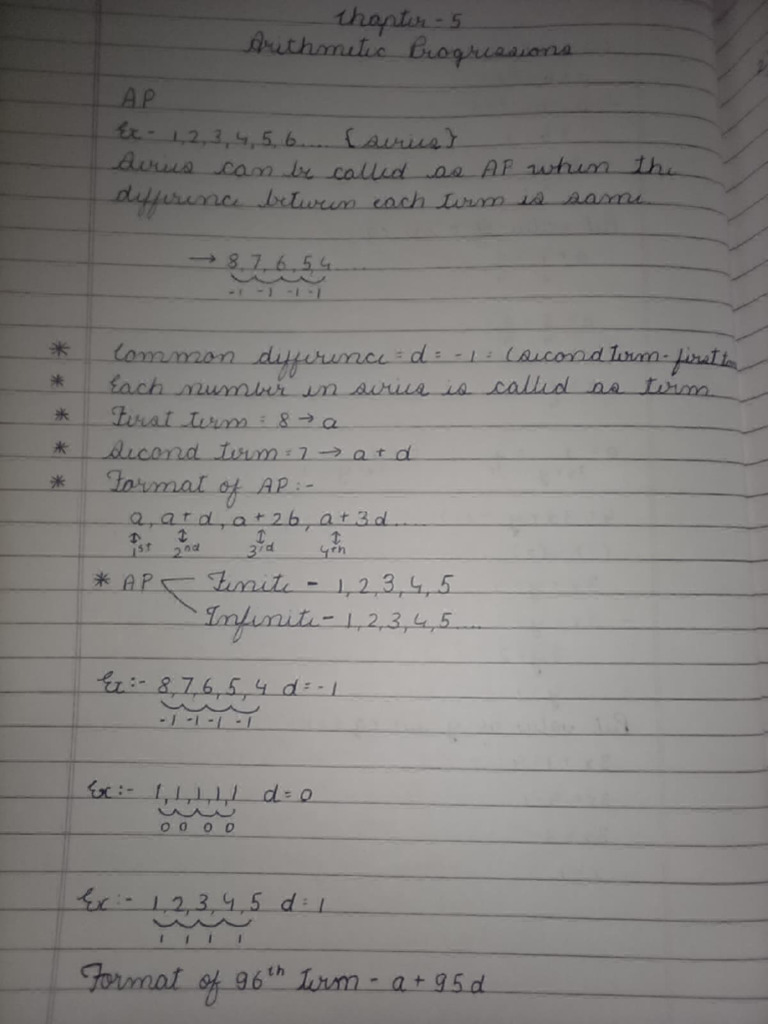 Chapter - 5
Arithmetic Progressions
AP
Ex - 1, 2, 3, 4, 5, 6.... {series}
Series can be called as AP when the
difference between each term is same.
→ 8, 7, 6, 5, 4 ....
-1 -1 -1 -1
* Common difference = d = -1 = (second term - first
* Each number in series is called as term
* First term = 8 → a
* Second term = 7 → a + d
* Format of AP :-
a, a + d, a + 2b, a + 3d ....
↕ ↕ ↕ ↕
1st 2nd 3rd 4th
* AP Finite - 1, 2, 3, 4, 5
Infinite - 1, 2, 3, 4, 5 ....
Ex :- 8, 7, 6, 5, 4 d = -1
-1 -1 -1 -1
Ex :- 1, 1, 1, 1, 1 d = 0
0 0 0 0
Ex :- 1, 2, 3, 4, 5 d = 1
1 1 1 1
Format of 96th term - a + 95d